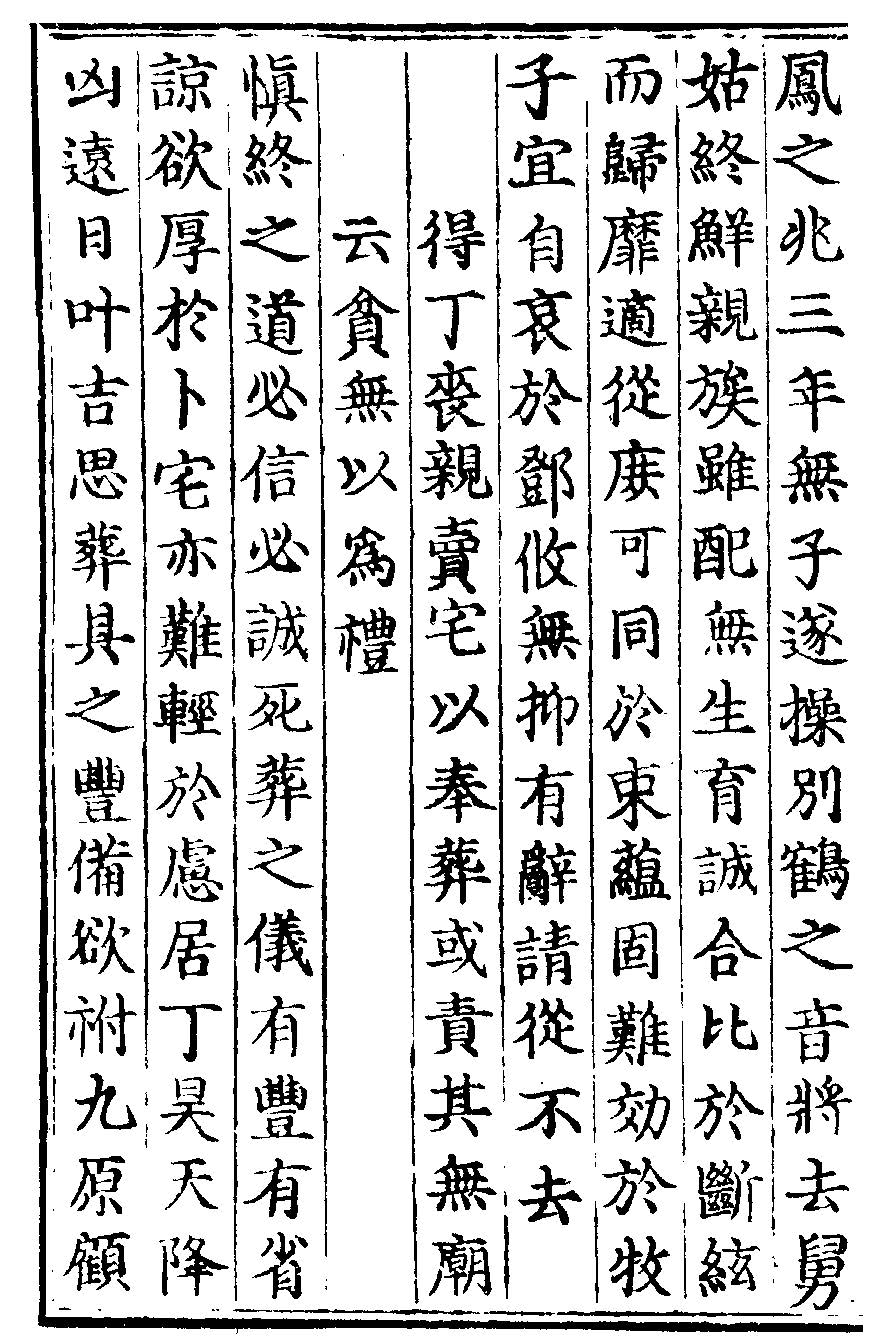 鳳之兆三年無子遂操別鶴之音將去舅
姑終鮮親族雖配無生育誠合比於斷絃
而歸靡適從庻可同於束蘊固難効於牧
子宜自哀於鄧攸無抑有辭請從不去
得丁喪親賣宅以奉葬或責其無廟
云貧無以爲禮
愼終之道必信必誠死葬之儀有豐有省
諒欲厚於卜宅亦難輕於慮居丁昊天降
凶遠日叶吉思葬具之豐備欲祔九原顧